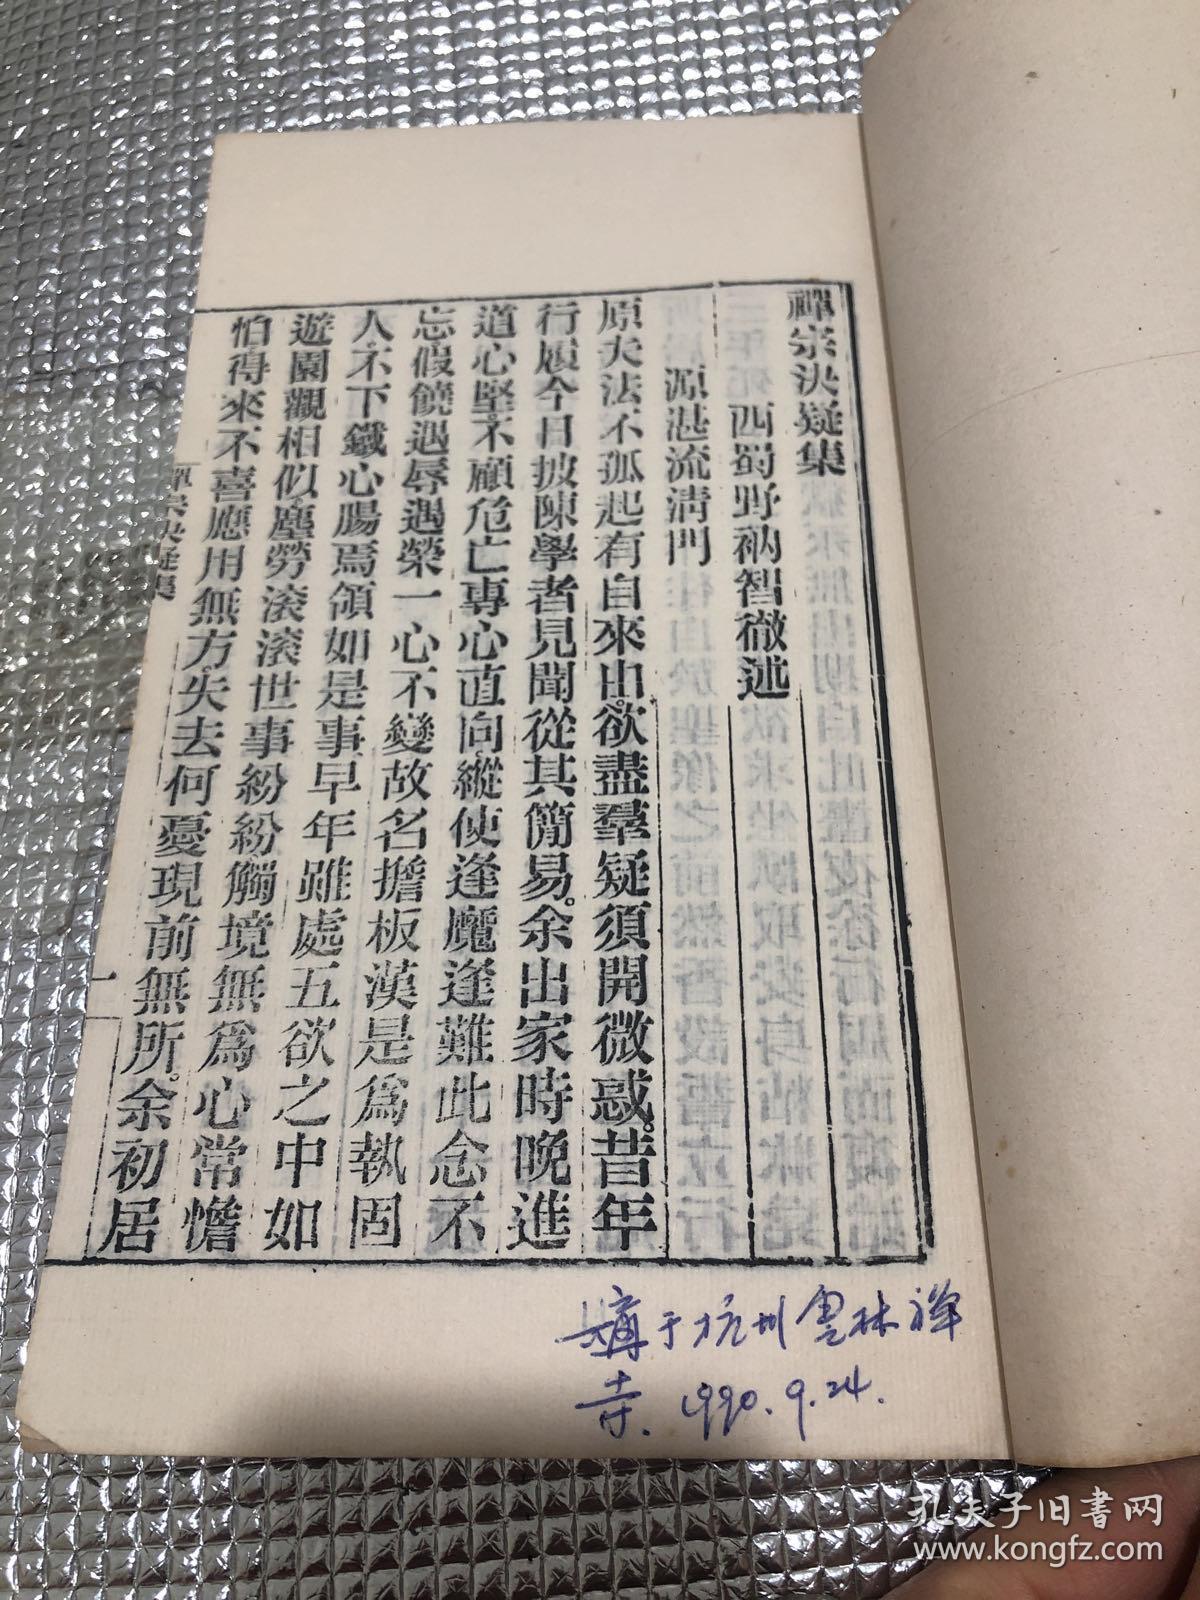 禪宗決疑集
西蜀野衲智徹述
源湛流清門
原夫法不孤起有自來由。欲盡羣疑須開微惑。昔年
行履今日披陳學者見聞從其簡易。余出家時晚進
道心堅。不顧危亡專心直向縱使逢魔逢難此念不
忘假饒遇辱遇榮一心不變故名擔板漢是為執固
人。不下鐵心腸焉領如是事早年雖處五欲之中如
遊園觀相似。塵勞滚滚世事紛紛觸境無爲心常憺
怕得來不喜應用無方。失去何憂現前無所。余初居
禪宗決疑集
一
購于杭州雲林禅
寺. 1990.9.24.
孔夫子旧書网
www.kongfz.com